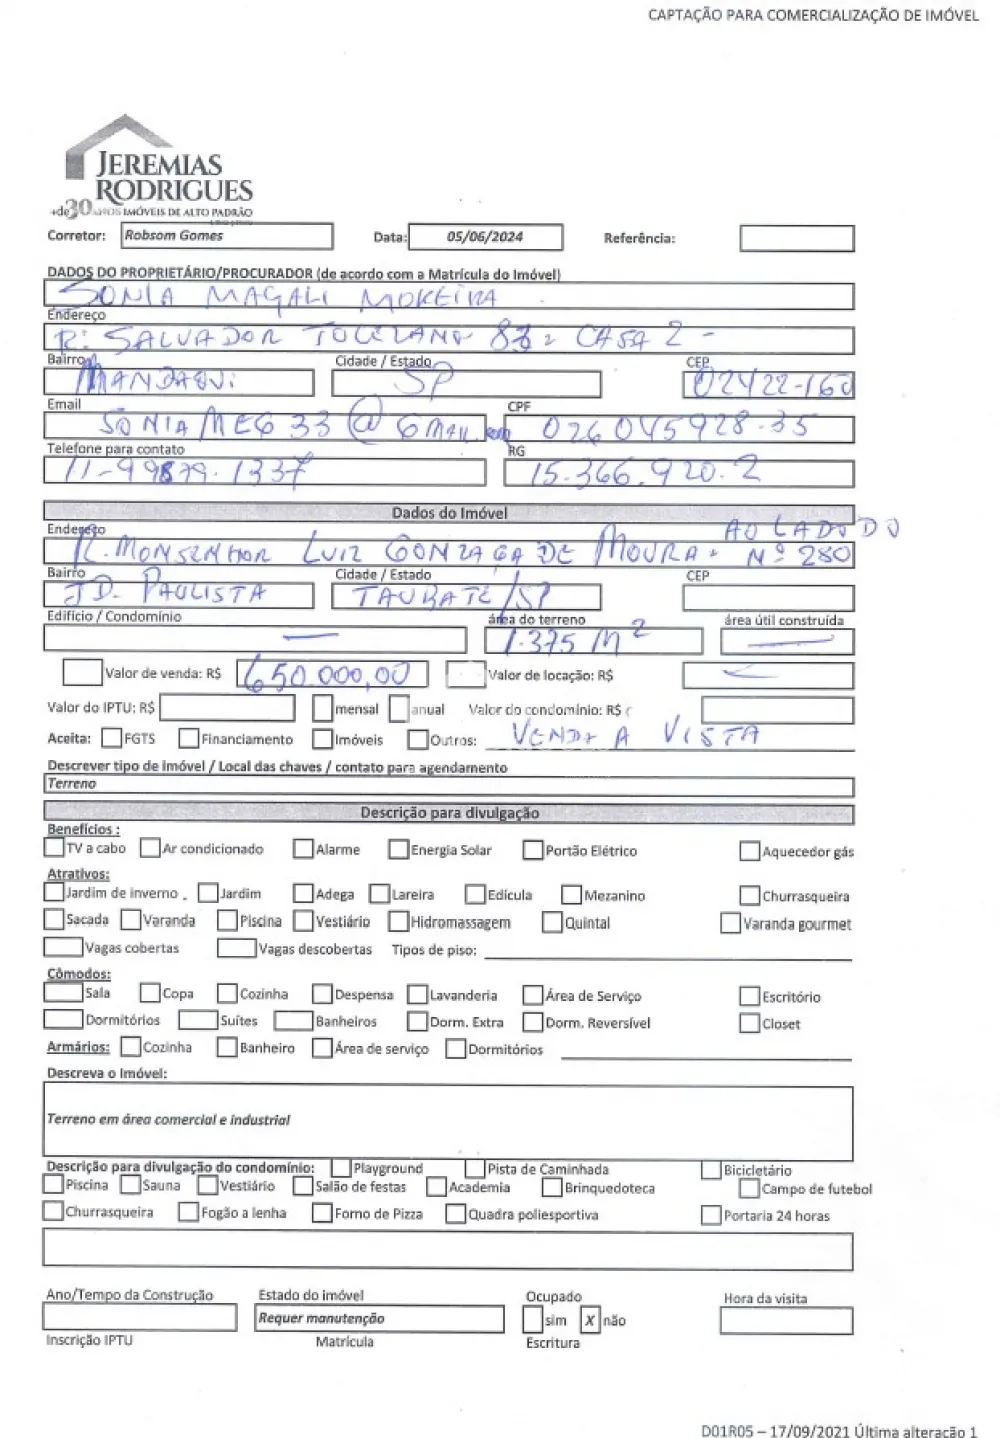 CAPTAÇÃO PARA COMERCIALIZAÇÃO DE IMÓVEL
JEREMIAS
RODRIGUES
+de 30 ANOS IMÓVEIS DE ALTO PADRÃO
Corretor: Robsom Gomes Data: 05/06/2024 Referência:
DADOS DO PROPRIETÁRIO/PROCURADOR (de acordo com a Matrícula do Imóvel)
SONIA MAGALI MOREIRA
Endereço
R: SALVADOR TOLEZANO CASA 2 -
Bairro Cidade / Estado CEP
MANDAQUI SP 02422-160
Email CPF
SONIAMEG33@GMAIL.com 026045928-35
Telefone para contato RG
11-99879-1337 15.366.920-2
Dados do Imóvel
Endereço AO LADO DO
R. MONSENHOR LUIZ GONZAGA DE MOURA - Nº 280
Bairro Cidade / Estado CEP
JD. PAULISTA TAUBATE/SP
Edifício / Condomínio área do terreno área útil construída
— 1.375 M² —
Valor de venda: R$ 650.000,00 Valor de locação: R$ —
Valor do IPTU: R$ mensal anual Valor do condomínio: R$
Aceita: FGTS Financiamento Imóveis Outros: VENDA A VISTA
Descrever tipo de imóvel / Local das chaves / contato para agendamento
Terreno
Descrição para divulgação
Benefícios :
TV a cabo Ar condicionado Alarme Energia Solar Portão Elétrico Aquecedor gás
Atrativos:
Jardim de inverno . Jardim Adega Lareira Edícula Mezanino Churrasqueira
Sacada Varanda Piscina Vestiário Hidromassagem Quintal Varanda gourmet
Vagas cobertas Vagas descobertas Tipos de piso:
Cômodos:
Sala Copa Cozinha Despensa Lavanderia Área de Serviço Escritório
Dormitórios Suítes Banheiros Dorm. Extra Dorm. Reversível Closet
Armários: Cozinha Banheiro Área de serviço Dormitórios
Descreva o Imóvel:
Terreno em área comercial e industrial
Descrição para divulgação do condomínio: Playground Pista de Caminhada Bicicletário
Piscina Sauna Vestiário Salão de festas Academia Brinquedoteca Campo de futebol
Churrasqueira Fogão a lenha Forno de Pizza Quadra poliesportiva Portaria 24 horas
Ano/Tempo da Construção Estado do imóvel Ocupado Hora da visita
Requer manutenção sim X não
Inscrição IPTU Matrícula Escritura
D01R05 – 17/09/2021 Última alteração 1